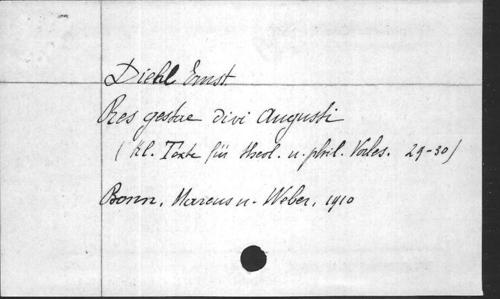 Diehl Ernst.
Res gestae divi Augusti
(Kl. Texte für theol. u. phil. Vorles. 29-30)
Bonn, Marcus u. Weber, 1910